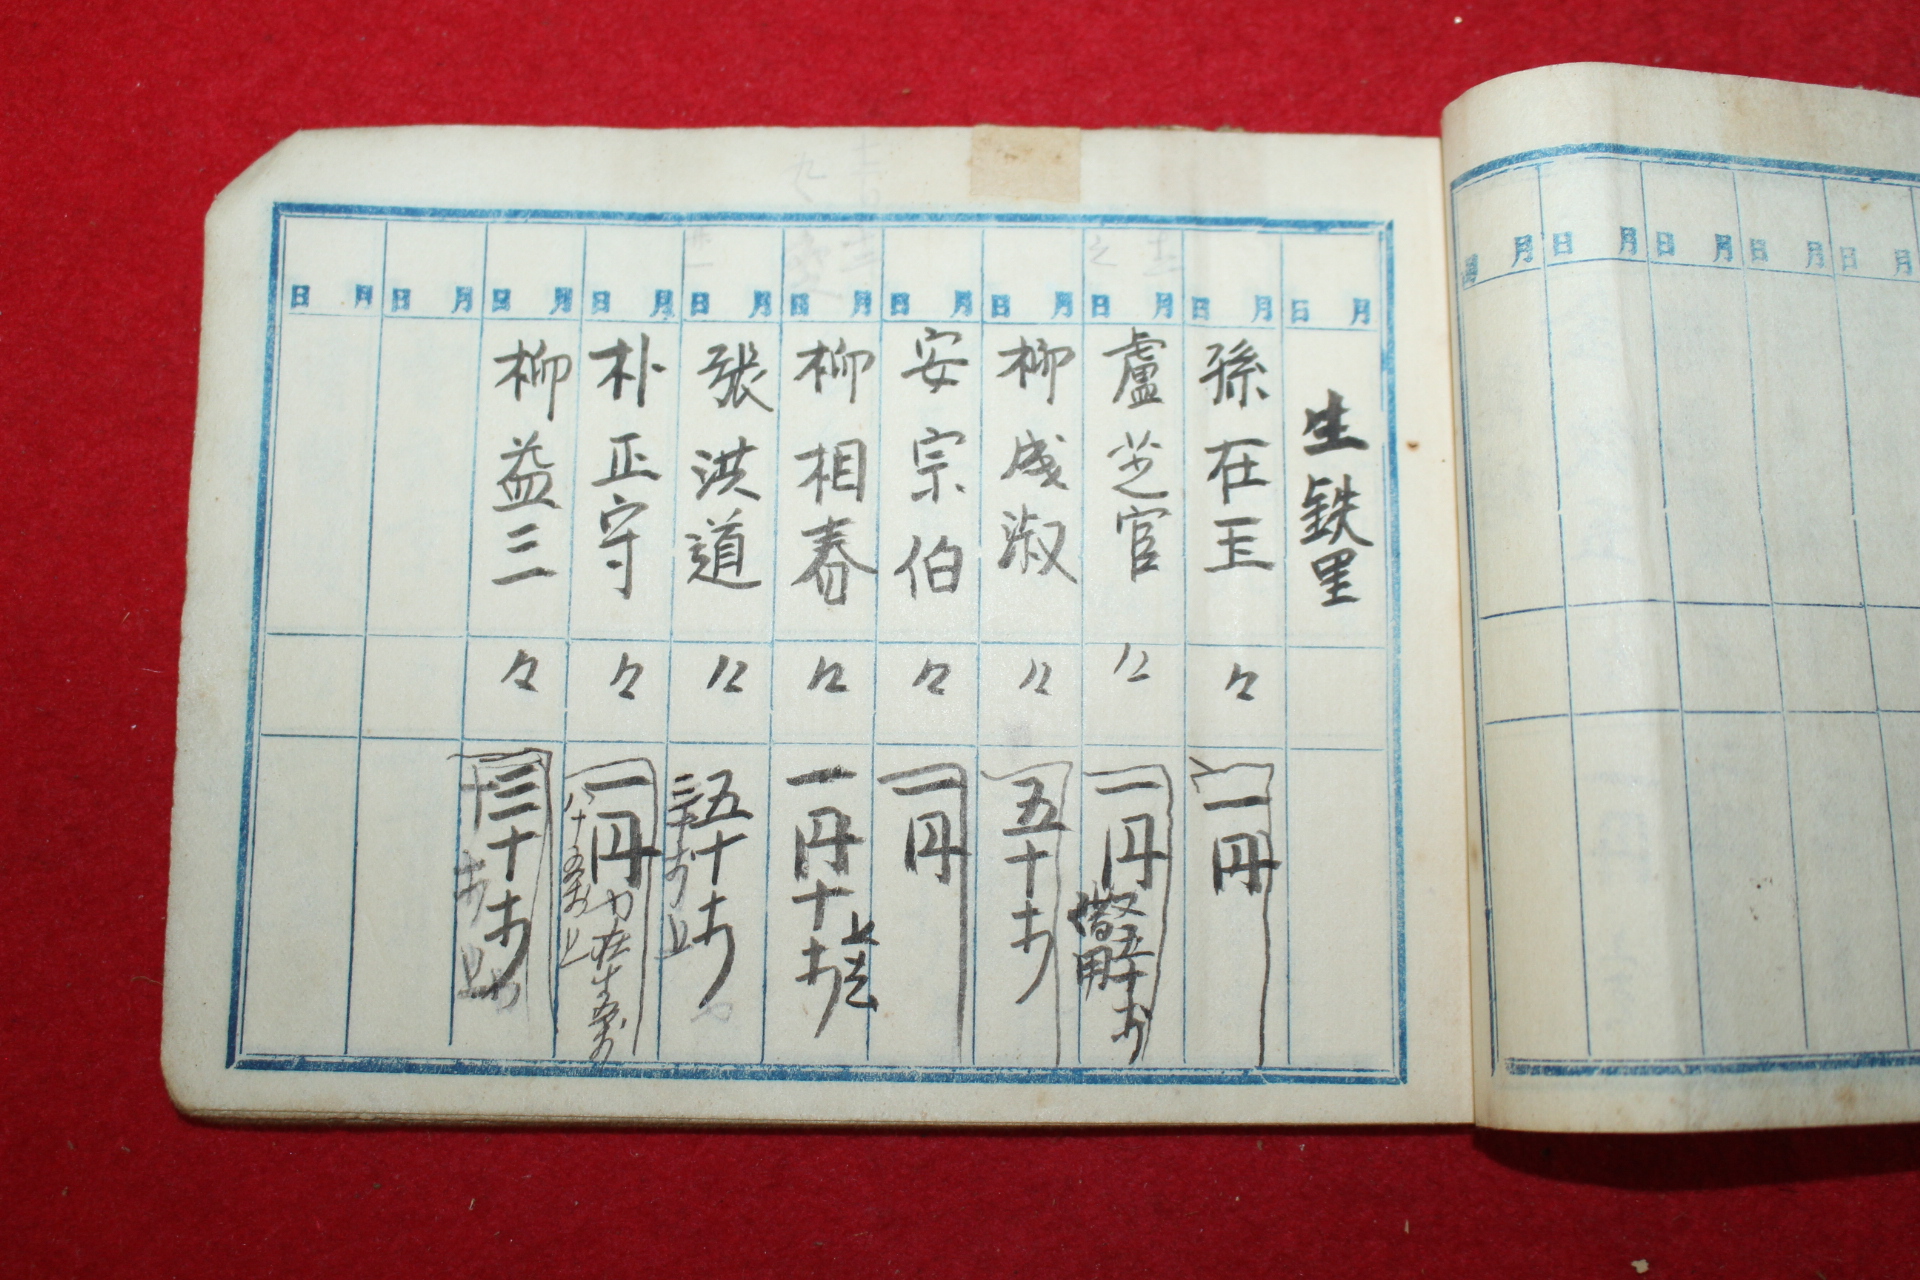 月 日
生鉄里
月 日
孫在玉 々 一円
月 日
盧芝官 〃 一円
五十
借用
月 日
柳成淑 〃 五十才
月 日
安宗伯 々 一円
月 日
柳相春 々 一円十才
月 日
張洪道 々 五十才
三十才
月 日
朴正守 々 一円
八十五才
月 日
柳益三 々 三十才
月 日
月 日
月 日
月 日
月 日
月 日
月